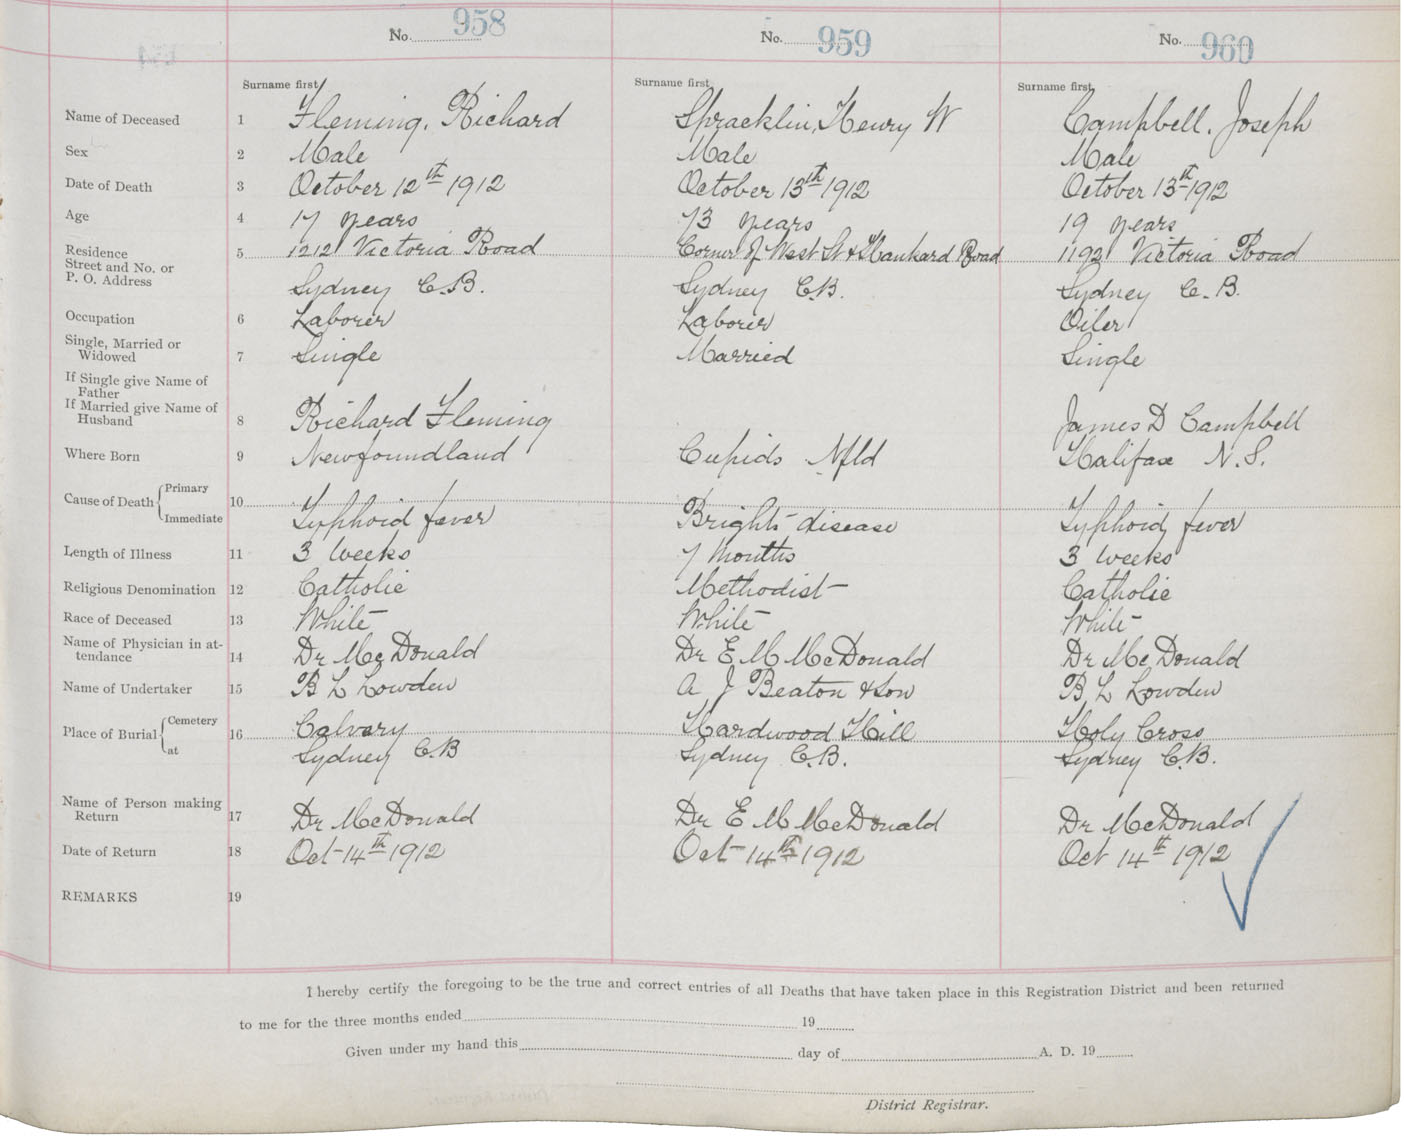 No. 958 No. 959 No. 960
Surname first Surname first Surname first
Name of Deceased 1 Fleming, Richard Spracklin, Henry W Campbell, Joseph
Sex 2 Male Male Male
Date of Death 3 October 12th 1912 October 13th 1912 October 13th 1912
Age 4 17 years 73 years 19 years
Residence 5 1212 Victoria Road Corner of West St & Hankard Road 1192 Victoria Road
Street and No. or
P. O. Address Sydney C.B. Sydney C.B. Sydney C.B.
Occupation 6 Laborer Laborer Oiler
Single, Married or
Widowed 7 Single Married Single
If Single give Name of
Father
If Married give Name of
Husband 8 Richard Fleming James D Campbell
Where Born 9 Newfoundland Cupids Nfld Halifax N.S.
Cause of Death Primary 10
Immediate Typhoid fever Brights disease Typhoid fever
Length of Illness 11 3 weeks 7 months 3 weeks
Religious Denomination 12 Catholic Methodist Catholic
Race of Deceased 13 White White White
Name of Physician in at-
tendance 14 Dr McDonald Dr E M McDonald Dr McDonald
Name of Undertaker 15 B L Lowden A J Beaton & Son B L Lowden
Place of Burial Cemetery 16 Calvary Hardwood Hill Holy Cross
at Sydney C.B Sydney C.B. Sydney C.B.
Name of Person making
Return 17 Dr McDonald Dr E M McDonald Dr McDonald
Date of Return 18 Oct 14th 1912 Oct 14th 1912 Oct 14th 1912
REMARKS 19
I hereby certify the foregoing to be the true and correct entries of all Deaths that have taken place in this Registration District and been returned
to me for the three months ended 19
Given under my hand this day of A. D. 19
District Registrar.